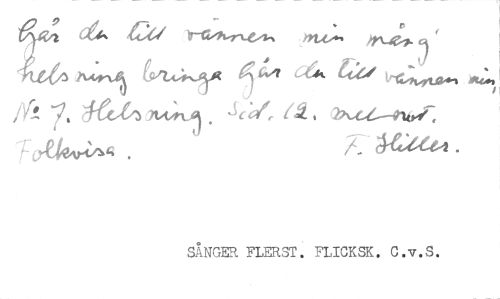 Går du till vännen min mång'
helsning bringa Går du till vännen min,
No 7. Helsning. Sid. 12. med not.
Folkvisa. F. Hiller.
SÅNGER FLERST. FLICKSK. C.v.S.